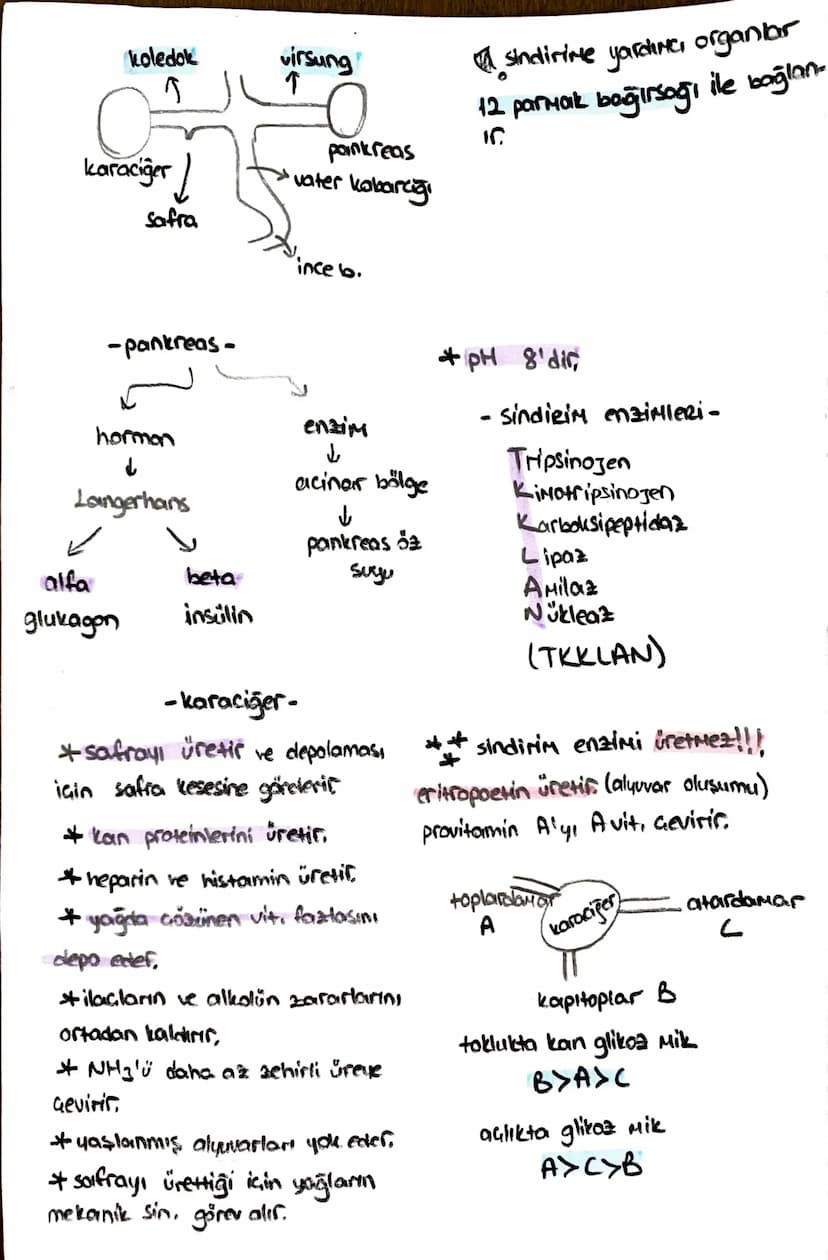 koledok
virsung
karaciğer
safra
pankreas
vater kabarcığı
ince b.
sindirime yardımcı organlar
12 parmak bağırsağı ile bağlan-
ır.
-pankreas-
hormon
Langerhans
alfa
glukagon
beta
insülin
enzim
acinar bölge
pankreas öz
suyu
* pH 8'dir,
- sindirim enzimleri -
Tripsinojen
Kimotripsinojen
Karboksipeptidaz
Lipaz
Amilaz
Nükleaz
(TKKLAN)
-karaciğer-
* safrayı üretir ve depolaması
için safra kesesine gönderir
* kan proteinlerini üretir,
* heparin ve histamin üretir,
* yağda çözünen vit. fazlasını
depo eder,
* ilaçların ve alkolün zararlarını
ortadan kaldırır,
* NH3'ü daha az zehirli üreye
çevirir,
* yaşlanmış alyuvarları yok eder,
* safrayı ürettiği için yağların
mekanik sin. görev alır.
*** sindirim enzimi üretmez!!!,
eritropoetin üretir. (alyuvar oluşumu)
provitamin A'yı A vit. çevirir.
toplardamar
A
karaciğer
atardamar
C
kapıtoplar B
toklukta kan glikoz mik
B>A>C
açlıkta glikoz mik
A>C>B